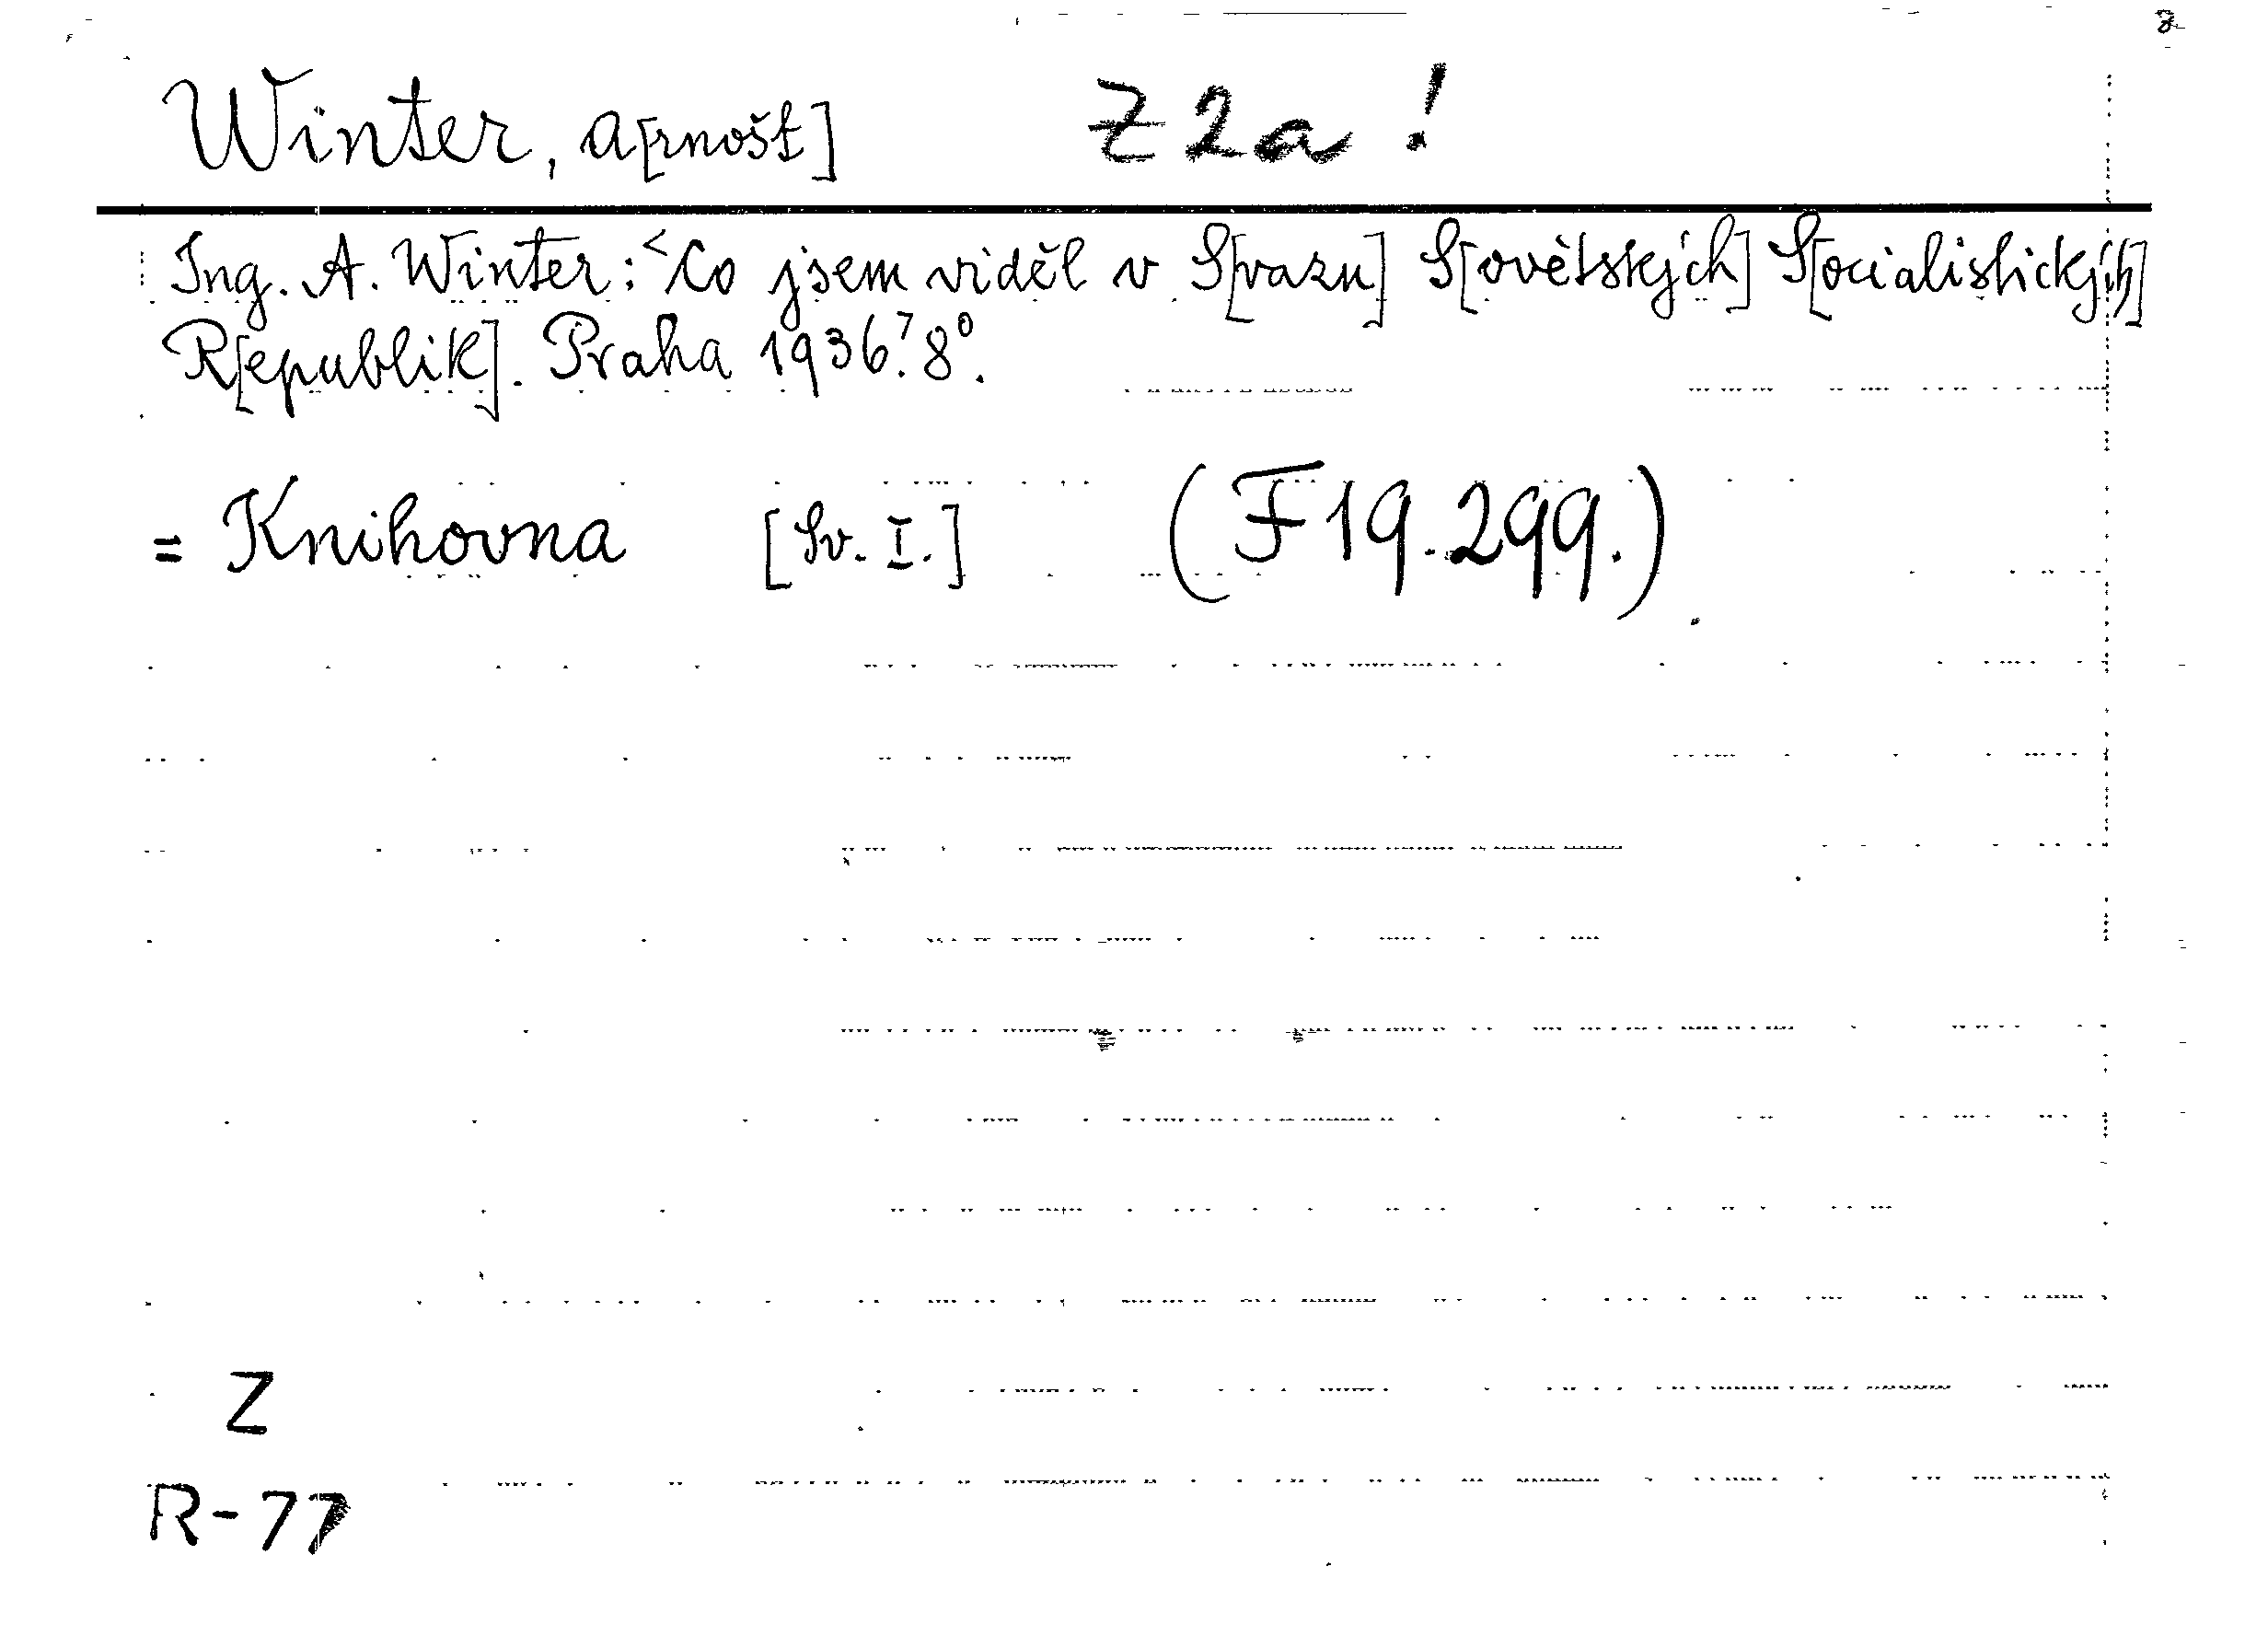 Winter, A[rnošt] Z2a!
Ing. A. Winter: <Co jsem viděl v S[vazu] S[ovětských] S[ocialistických]
R[epublik]. Praha 1936.⁷ 8⁰.
= Knihovna [Sv. I.] (F 19.299.)
Z
R-77